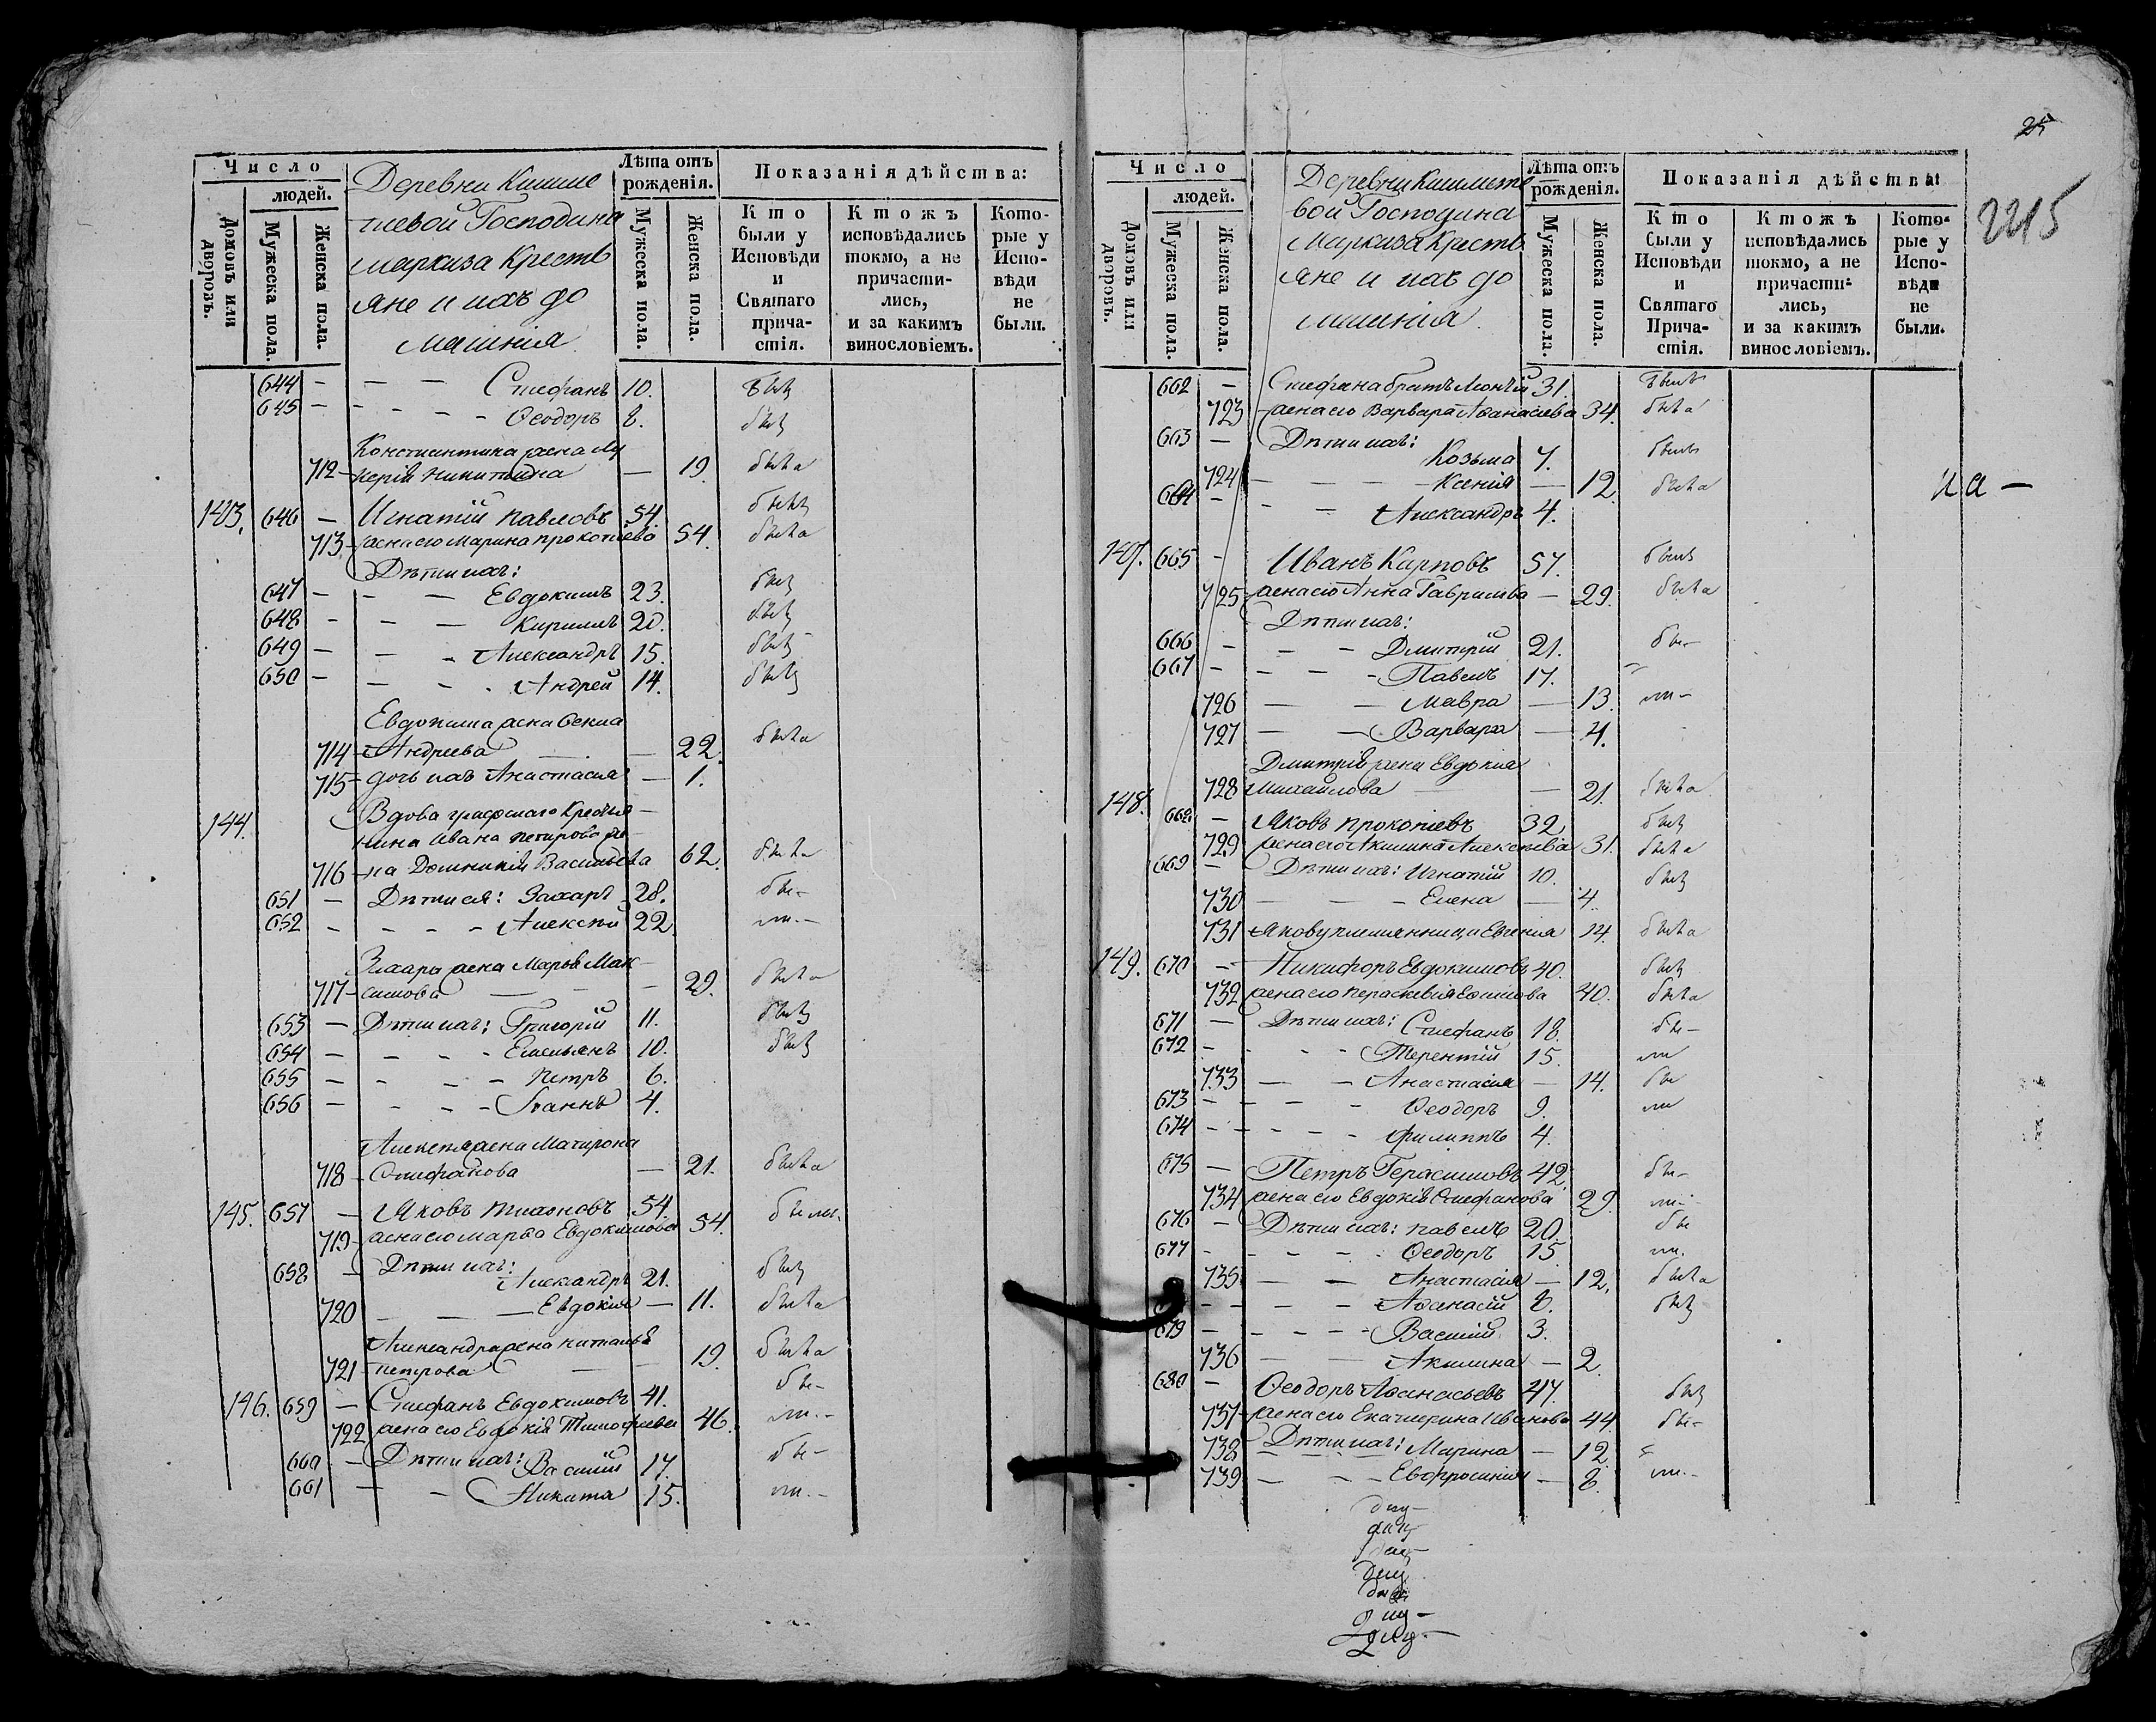 Число
людей.
Домовъ или дворовъ.
Мужеска пола.
Женска пола.
Деревни Кишме
тиевой Господина
маркиза Кресть
яне и ихъ до
машнія
Лѣта отъ рожденія.
Мужеска пола.
Женска пола.
Показанія дѣйства:
Кто были у Исповѣди и Святаго причастія.
Ктожъ исповѣдались токмо, а не причастились, и за какимъ винословіемъ.
Которые у Исповѣди не были.
644 - - - Стефанъ 10. былъ
645 - - - - Ѳеодоръ 8. былъ
Константина жена Лу
712 - керія Никитина - 19. была
143. 646 - Игнатій Павловъ 54. былъ
713 - жена его Марина Прокопіева 54. была
Дѣти ихъ:
647 - - - Евдокимъ 23. былъ
648 - - - Кирилъ 20. былъ
649 - - - Александръ 15. былъ
650 - - - Андрей 14. былъ
Евдокима жена Ѳекла
714 - Андреева - - 22. была
715 - дочь ихъ Анастасія - 1.
144. Вдова графскаго Крестья-
нина Ивана Петрова же-
716 - на Домникія Васильева 62. была
651 - Дѣти ея: Захаръ 28. бы-
652 - - - - Алексѣй 22. ли.-
Захара жена Марья Мак-
717 - симова - - - 29. была
653 - Дѣти ихъ: Григорій 11. былъ
654 - - - - Емельянъ 10. былъ
655 - - - - Петръ 6.
656 - - - - Іоаннъ 4.
Алексѣя жена Матирона
718 - Стефанова - 21. была
145. 657 - Яковъ Тихоновъ 54. были.
719 - жена его Марѳа Евдокимова 54.
658 - Дѣти ихъ:
Александръ 21. былъ
720 - - - Евдокия - 11. была
Александра жена Наталья
721 - Петрова - - 19. была
146. 659 - Стефанъ Евдокимовъ 41. бы-
722 жена его Евдокія Тимофеева 46. ли.-
660 - Дѣти ихъ: Василій 17. бы-
661 - - Никита 15. ли.-
25
2215
Число
людей.
Домовъ или дворовъ.
Мужеска пола.
Женска пола.
Деревни Кишмете
вой Господина
Маркиза Кресть
яне и ихъ до
машнія.
Лѣта отъ рожденія.
Мужеска пола.
Женска пола.
Показанія дѣйства:
Кто были у Исповѣди и Святаго Причастія.
Ктожъ исповѣдались токмо, а не причастились, и за какимъ винословіемъ.
Которые у Исповѣди не были.
662 - Стефана братъ 31. былъ
723 - жена его Варвара Аѳанасіева 34. была
663 - Дѣти ихъ:
Козьма 7. былъ
724 - - - - Ксенія - 12. была
664 - - - Александръ 4.
на -
147. 665 - Иванъ Карповъ 57. былъ
725 - жена его Анна Гаврилова - 29. была
Дѣти ихъ:
666 - - - Дмитрій 21. бы-
667 - - - Павелъ 17.
726 - - Мавра - 13. ли-
727 - - Варвара - 4.
Дмитрія жена Евдокия
728 Михайлова - - 21. была
148. 668 - Яковъ Прокопіевъ 32. былъ
729 жена его Акилина Алексѣева 31. была
669 - Дѣти ихъ: Игнатій 10. былъ
730 - - - Елена - 4.
731 Якову племянница Евгения 14. была
149. 670 - Никифоръ Евдокимовъ 40. былъ
732 жена его Пераскевія Еѳимова 40. была
671 - Дѣти ихъ: Стефанъ 18. бы-
672 - - - - Терентій 15. ли
733 - - Анастасия - 14. бы
673 - - - - Ѳеодоръ 9. ли
674 - - - - - Филиппъ 4.
675 - Петръ Герасимовъ 42. бы-
734 жена его Евдокія Стефанова 29. ли-
676 - Дѣти ихъ: Павелъ 20. бы
677 - - - - Ѳеодоръ 15. ли.
735 - - Анастасия - 12. была
- - - - Аѳанасій 8. былъ
679 - - - - Василій 3.
736 - - Акилина - 2.
680 - Ѳеодоръ Аѳанасьевъ 47. былъ
737 - жена его Екатерина Иванова 44. бы-
738 - Дѣти ихъ: Марина - 12.
739 - - - Евфросинія - 8. ли.-